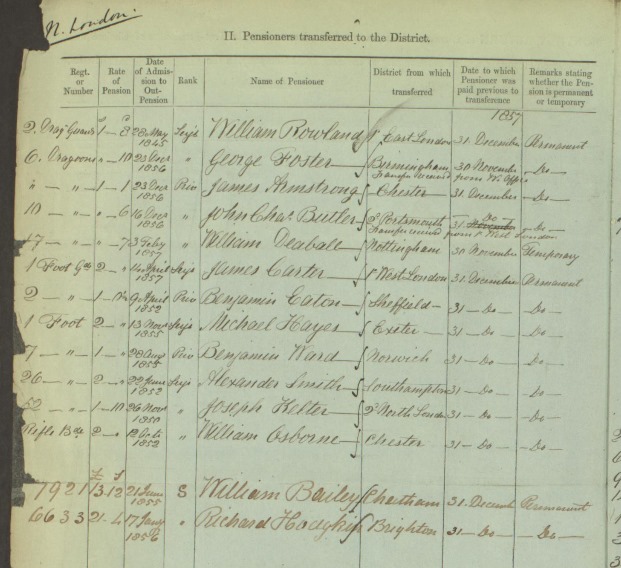 N. London
II. Pensioners transferred to the District.
Regt. or Number | Rate of Pension | Date of Admission to Out-Pension | Rank | Name of Pensioner | District from which transferred | Date to which Pensioner was paid previous to transference | Remarks stating whether the Pension is permanent or temporary
1857
2. Drag Guards 1 - 8 28 May 1845 Serj William Rowland East London 31 December Permanent
6. Dragoons 23 Decr 1856 " George Foster Birmingham 30 November - Do -
Transfer Received from W. Office
" - " - 1 - 1 23 Decr 1856 Priv James Armstrong Chester 31 December - Do -
10 - " - " - 6 16 Decr 1856 " John Chas. Butler 2d Portsmouth 31 Do - Do -
Transfer received from West London
17 - " - 7 3 Feby 1857 " William Deaball Nottingham 30 November Temporary
1 Foot Gds 2 - " 14 April 1857 Serj James Carter West London 31 December Permanent
2 - " - 1 9 April 1852 Priv Benjamin Eaton Sheffield 31 - Do - - Do -
1 Foot 2 - " 13 Nov 1855 Serj Michael Hayes Exeter 31 - Do - - Do -
7 - " - 1 - " 28 Aug 1855 Priv Benjamin Ward Norwich 31 - Do - - Do -
26 - " - 2 - " 22 June 1852 Serj Alexander Smith Southampton 31 - Do - - Do -
52 - " - 1 - 10 26 Nov 1850 " Joseph Helter 2d North London 31 - Do - - Do -
Rifle Bde 2 - " 12 Oct 1852 " William Osborne Chester 31 - Do - - Do -
£ s
7921 13 - 12 21 June 1855 S William Bailey Chatham 31 - Decemb Permanent
6633 21 - 4 17 Jany 1856 " Richard Hodgkin Brighton 31 - Do - - Do -